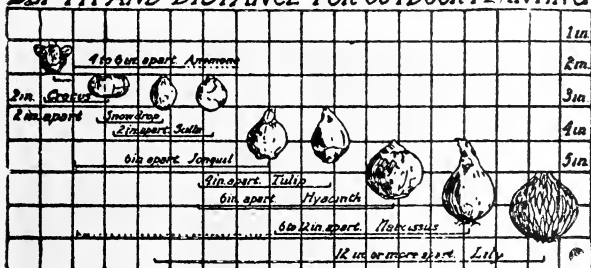 DEPTH AND DISTANCE FOR OUTDOOR PLANTING
1 in
4 to 6 in. apart. Anemone
2 in.
2 in. Crocus
3 in.
2 in. apart
Snowdrop
2 in. apart. Scilla
4 in.
6 in. apart. Jonquil
5 in.
4 in. apart. Tulip
6 in. apart. Hyacinth
6 to 12 in. apart. Narcissus
12 in. or more apart. Lily